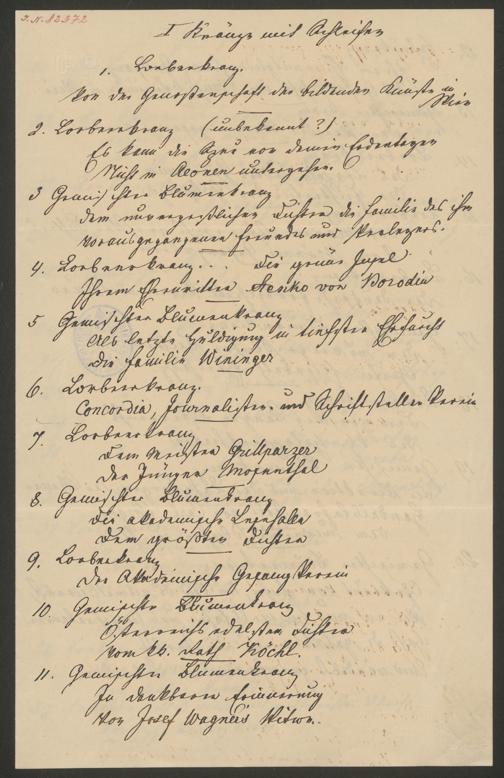 J.N. 82972
I Kränze mit Schleifen
1. Lorbeerkranz.
Von der Genossenschaft der bildenden Künste in Wien
2. Lorbeerkranz (unbekannt?)
Es kann die Spur von deinen Erdentagen
Nicht in Aeonen untergehen.
3 Gemischter Blumenkranz
dem unvergeßlichen Dichter die Familie des ihm
vorausgegangenen Freundes und Verlegers.
4. Lorbeerkranz... Die grüne Insel
Ihrem Ehrenritter Aenko von Borodin
5 Gemischter Blumenkranz
Als letzte Huldigung in tiefster Ehrfurcht
die Familie Wininger
6. Lorbeerkranz.
Concordia, Journalisten- und Schriftsteller Verein
7. Lorbeerkranz
Dem Meister Grillparzer
der Jünger Mosenthal
8. Gemischter Blumenkranz
Die akademische Lesehalle
dem größten Dichter
9. Lorbeerkranz
Der Akademische Gesangverein
10. Gemischter Blumenkranz
Österreichs edelsten Dichter
vom kk. Rath Köchl.
11. Gemischter Blumenkranz
In dankbarer Erinnerung
von Josef Wagner's Witwe.